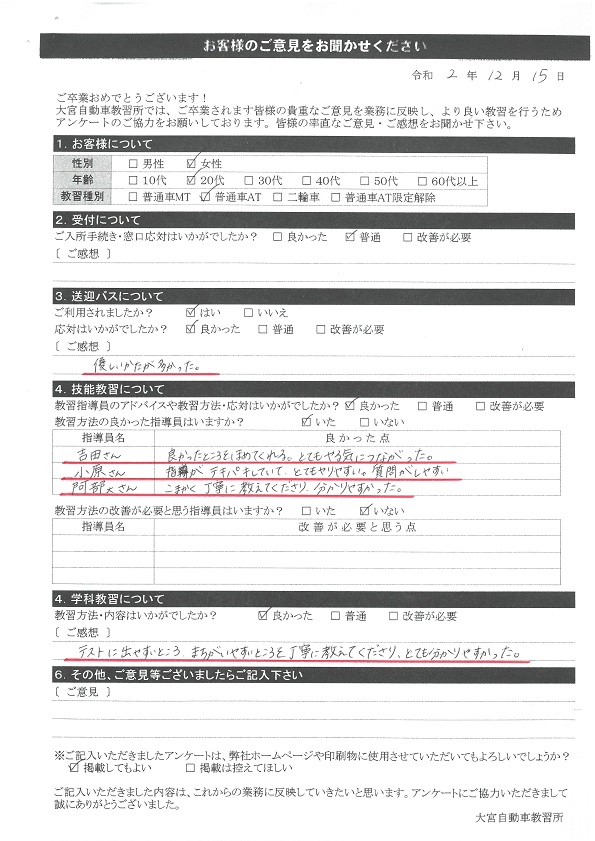 お客様のご意見をお聞かせください
令和 2 年 12 月 15 日
ご卒業おめでとうございます！
大宮自動車教習所では、ご卒業されます皆様の貴重なご意見を業務に反映し、より良い教習を行うため
アンケートのご協力をお願いしております。皆様の率直なご意見・ご感想をお聞かせ下さい。
1. お客様について
性別 □ 男性 ☑ 女性
年齢 □ 10代 ☑ 20代 □ 30代 □ 40代 □ 50代 □ 60代以上
教習種別 □ 普通車MT ☑ 普通車AT □ 二輪車 □ 普通車AT限定解除
2. 受付について
ご入所手続き・窓口応対はいかがでしたか? □ 良かった ☑ 普通 □ 改善が必要
〔 ご感想 〕
3. 送迎バスについて
ご利用されましたか? ☑ はい □ いいえ
応対はいかがでしたか? ☑ 良かった □ 普通 □ 改善が必要
〔 ご感想 〕
優しいかたが多かった。
4. 技能教習について
教習指導員のアドバイスや教習方法・応対はいかがでしたか? ☑ 良かった □ 普通 □ 改善が必要
教習方法の良かった指導員はいますか? ☑ いた □ いない
指導員名 良かった点
吉田さん 良かったところをほめてくれる。とてもやる気につながった。
小原さん 指導がテキパキしていて、とてもやりやすい。質問がしやすい
阿部大さん こまかく丁寧に教えてくださり 分かりやすかった。
教習方法の改善が必要と思う指導員はいますか? □ いた ☑ いない
指導員名 改善が必要と思う点
4. 学科教習について
教習方法・内容はいかがでしたか? ☑ 良かった □ 普通 □ 改善が必要
〔 ご感想 〕
テストに出やすいところ、まちがいやすいところを丁寧に教えてくださり、とても分かりやすかった。
6. その他、ご意見等ございましたらご記入下さい
〔 ご意見 〕
※ご記入いただきましたアンケートは、弊社ホームページや印刷物に使用させていただいてもよろしいでしょうか?
☑ 掲載してもよい □ 掲載は控えてほしい
ご記入いただきました内容は、これからの業務に反映していきたいと思います。アンケートにご協力いただきまして
誠にありがとうございました。
大宮自動車教習所